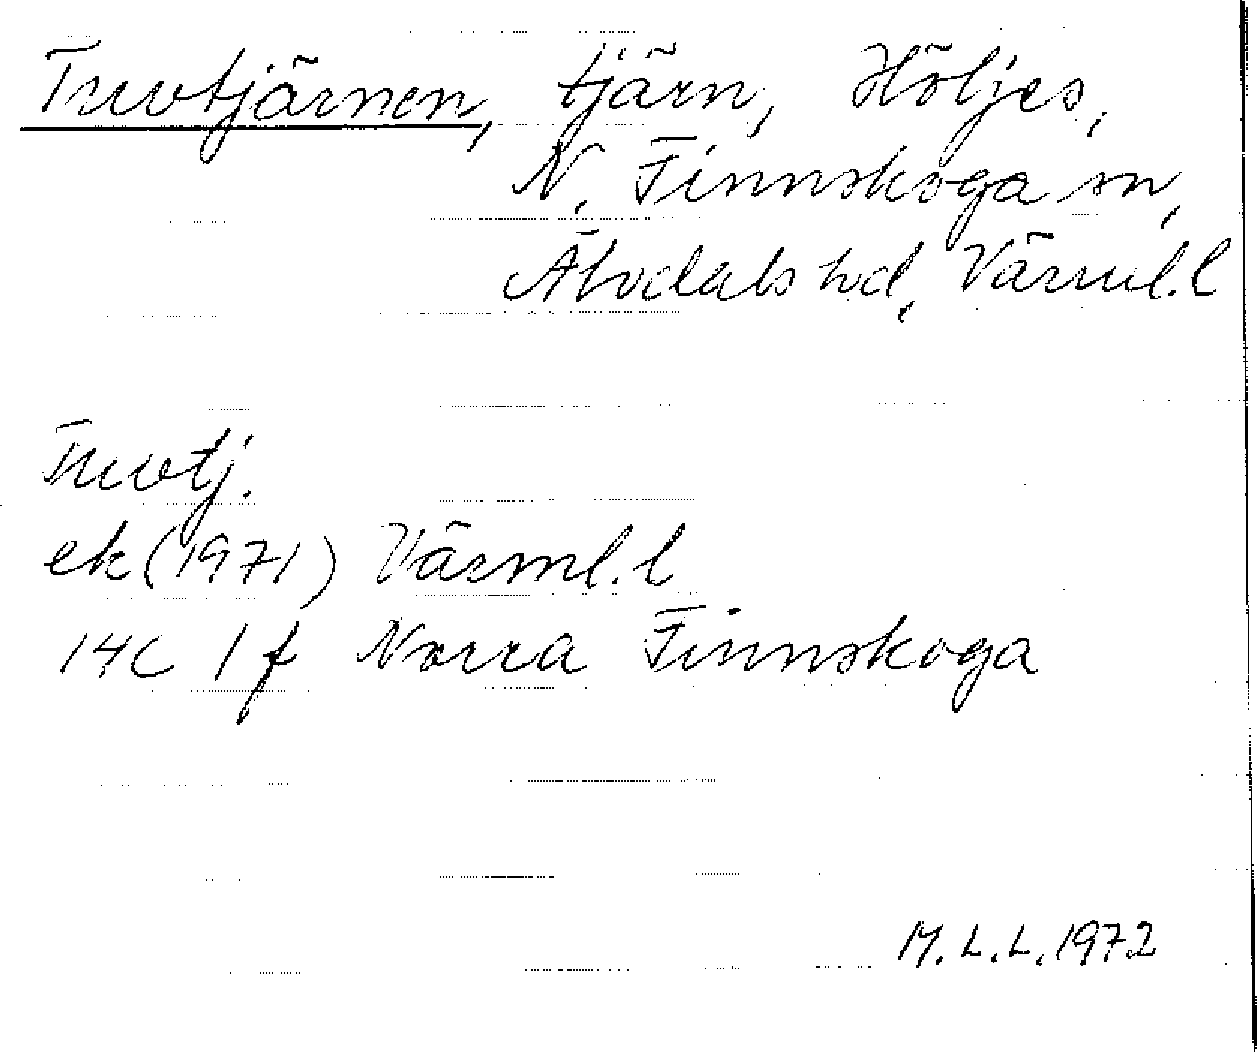 Truvtjärnen, tjärn, Höljes,
N. Finnskoga sn,
Älvdals hd, Värml. l
Truvtj.
ek (1971) Värml. l
14C 1f Norra Finnskoga
M. L. L. 1972